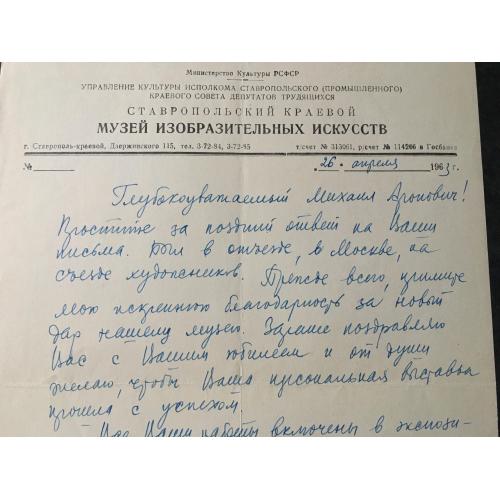 Министерство Культуры РСФСР
УПРАВЛЕНИЕ КУЛЬТУРЫ ИСПОЛКОМА СТАВРОПОЛЬСКОГО (ПРОМЫШЛЕННОГО)
КРАЕВОГО СОВЕТА ДЕПУТАТОВ ТРУДЯЩИХСЯ
СТАВРОПОЛЬСКИЙ КРАЕВОЙ
МУЗЕЙ ИЗОБРАЗИТЕЛЬНЫХ ИСКУССТВ
г. Ставрополь-краевой, Дзержинского 115, тел. 3-72-84, 3-72-85 т/счет № 313061, р/счет № 114266 в Госбанке
№ 26. апреля 1963 г.
Глубокоуважаемый Михаил Аронович!
Простите за поздний ответ на Ваши
письма. Был в отъезде, в Москве, на
съезде художников. Прежде всего, примите
мою искреннюю благодарность за новый
дар нашему музею. Заранее поздравляю
Вас с Вашим юбилеем и от души
желаю, чтобы Ваша персональная выставка
прошла с успехом.
Все Ваши работы включены в экспози-